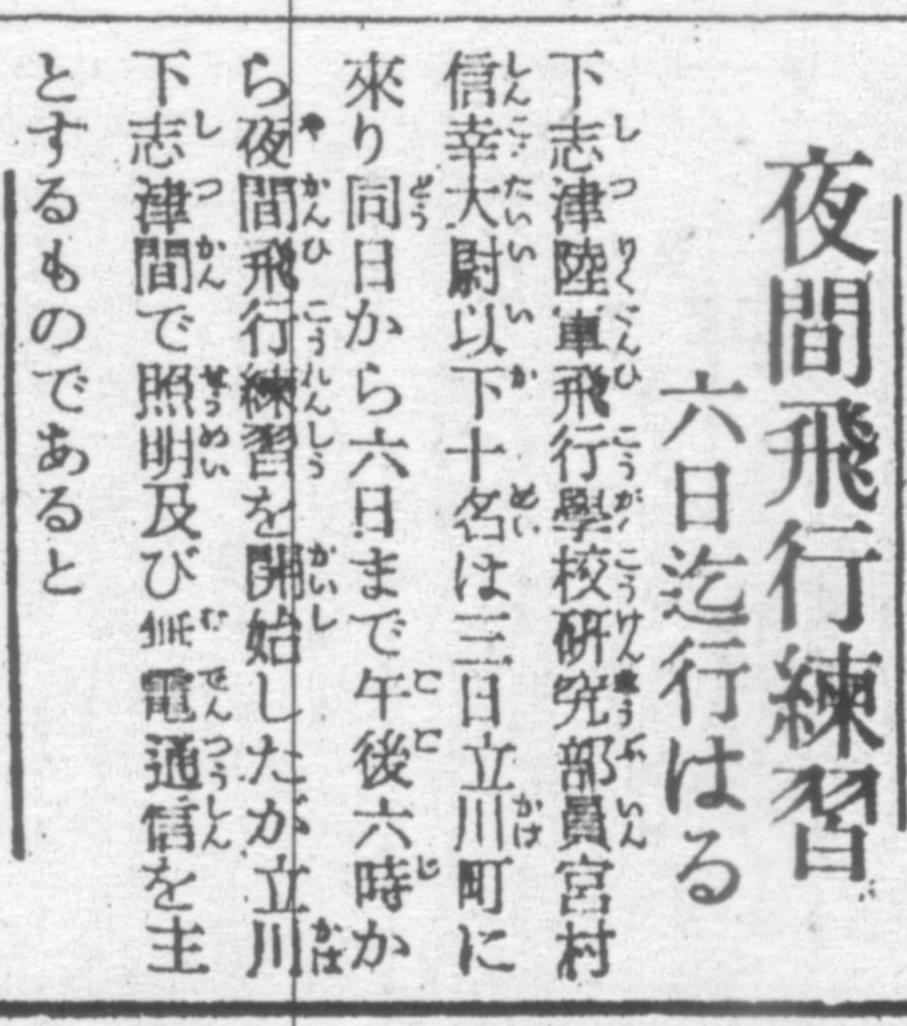 夜間飛行練習
六日迄行はる
下志津陸軍飛行學校研究部員宮村
信幸大尉以下十名は三日立川町に
來り同日から六日まで午後六時か
ら夜間飛行練習を開始したが立川
下志津間で照明及び無電通信を主
とするものであると